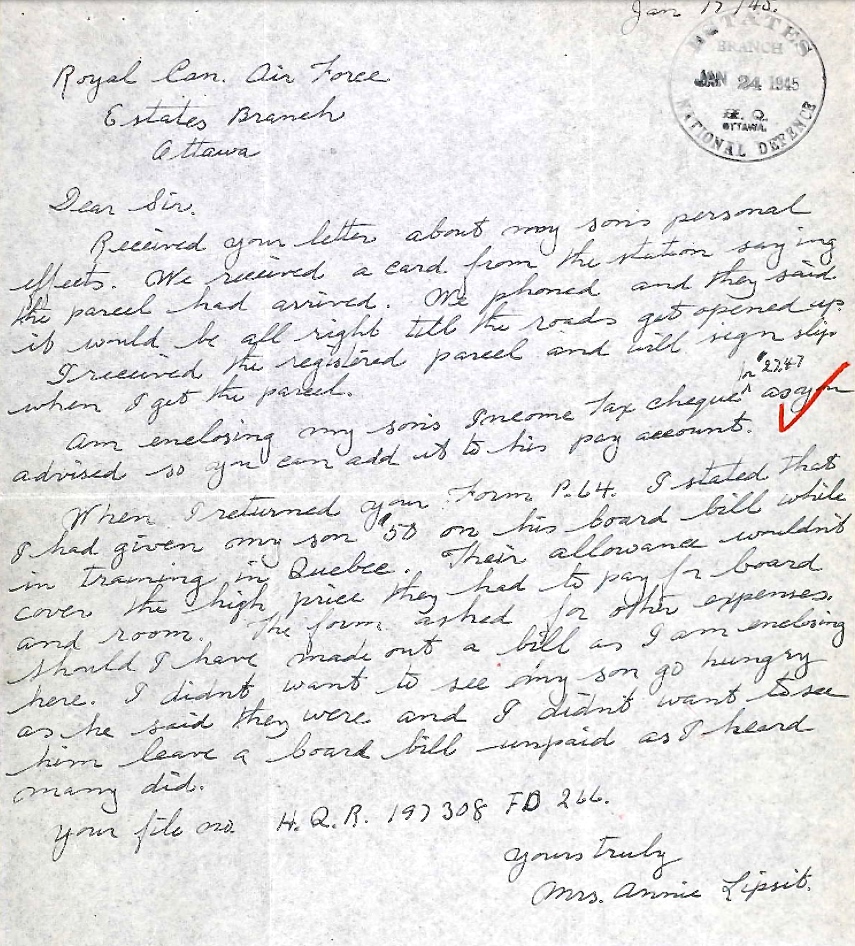 Jan 17/45.
ESTATES
BRANCH
JAN 24 1945
H. Q.
OTTAWA.
NATIONAL DEFENCE
Royal Can. Air Force
Estates Branch
Ottawa
Dear Sir.
Received your letter about my sons personal
effects. We received a card from the station saying
the parcel had arrived. We phoned and they said
it would be all right till the roads get opened up.
I received the registered parcel and will sign slip
when I get the parcel.
for $27.47
Am enclosing my sons Income Tax cheque as you
advised so you can add it to his pay account.
When I returned your Form P.64. I stated that
I had given my son $50 on his board bill while
in training in Quebec. Their allowance wouldn't
cover the high price they had to pay for board
and room. The form asked for other expenses.
Should I have made out a bill as I am enclosing
here. I didn't want to see my son go hungry
as he said they were and I didn't want to see
him leave a board bill unpaid as I heard
many did.
Your file no. H.Q.R. 197308 FD 266.
Yours truly
Mrs. Annie Lipsit.